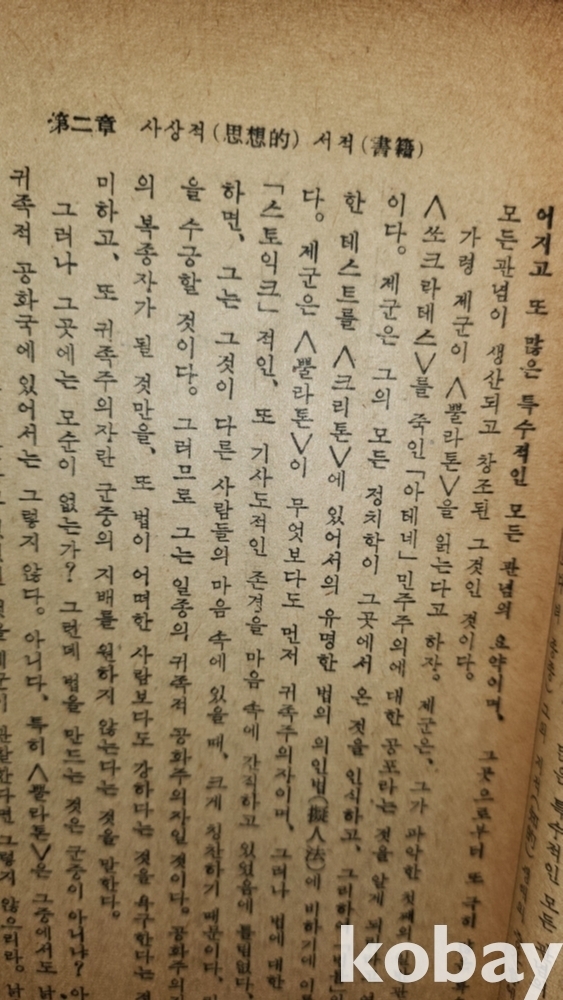 第二章 사상적(思想的) 서적(書籍)
어지고 또 많은 특수적인 모든 관념의 요약이며, 그곳으로부터 또
모든관념이 생산되고 창조된 그것인 것이다.
가령 제군이 <뿔라톤>을 읽는다고 하장. 제군은, 그가 파악한 첫째의
<쏘크라테스>를 죽인 「아테네」 민주주의에 대한 공포라는 것을 알게
이다. 제군은 그의 모든 정치학이 그곳에서 온 것을 인식하고, 그리하여
한 테스트를 <크리톤>에 있어서의 유명한 법의 의인법(擬人法)에 비하기에
다. 제군은 <뿔라톤>이 무엇보다도 먼저 귀족주의자이며, 그러나 법에 대한
「스토익크」적인, 또 기사도적인 존경을 마음 속에 간직하고 있었음에 틀림없다.
하면, 그는 그것이 다른 사람들의 마음 속에 있을 때, 크게 칭찬하기 때문이다.
을 수긍할 것이다. 그러므로 그는 일종의 귀족적 공화주의자일 것이다. 공화주의
의 복종자가 될 것만을, 또 법이 어떠한 사람보다도 강하다는 것을 욕구한다는
미하고, 또 귀족주의장란 군중의 지배를 원하지 않는다는 것을 말한다.
그러나 그곳에는 모순이 없는가? 그런데 법을 만드는 것은 군중이 아니냐? 아
귀족적 공화국에 있어서는 그렇지 않다. 아니다, 특히 <뿔라톤>은 그중에서도
kobay